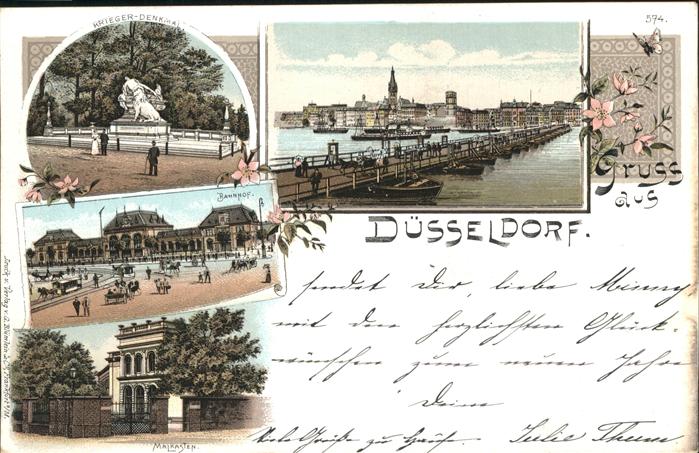 KRIEGER-DENKMAL
574.
Gruss
aus
DÜSSELDORF.
BAHNHOF.
MALKASTEN.
sendet Dir, liebe Minny
mit den herzlichsten Glück-
wünschen zum neuen Jahre
Deine
Viele Grüße zu Hause. Julie Thum
Druck u. Verlag v. Frankfurt a/M.